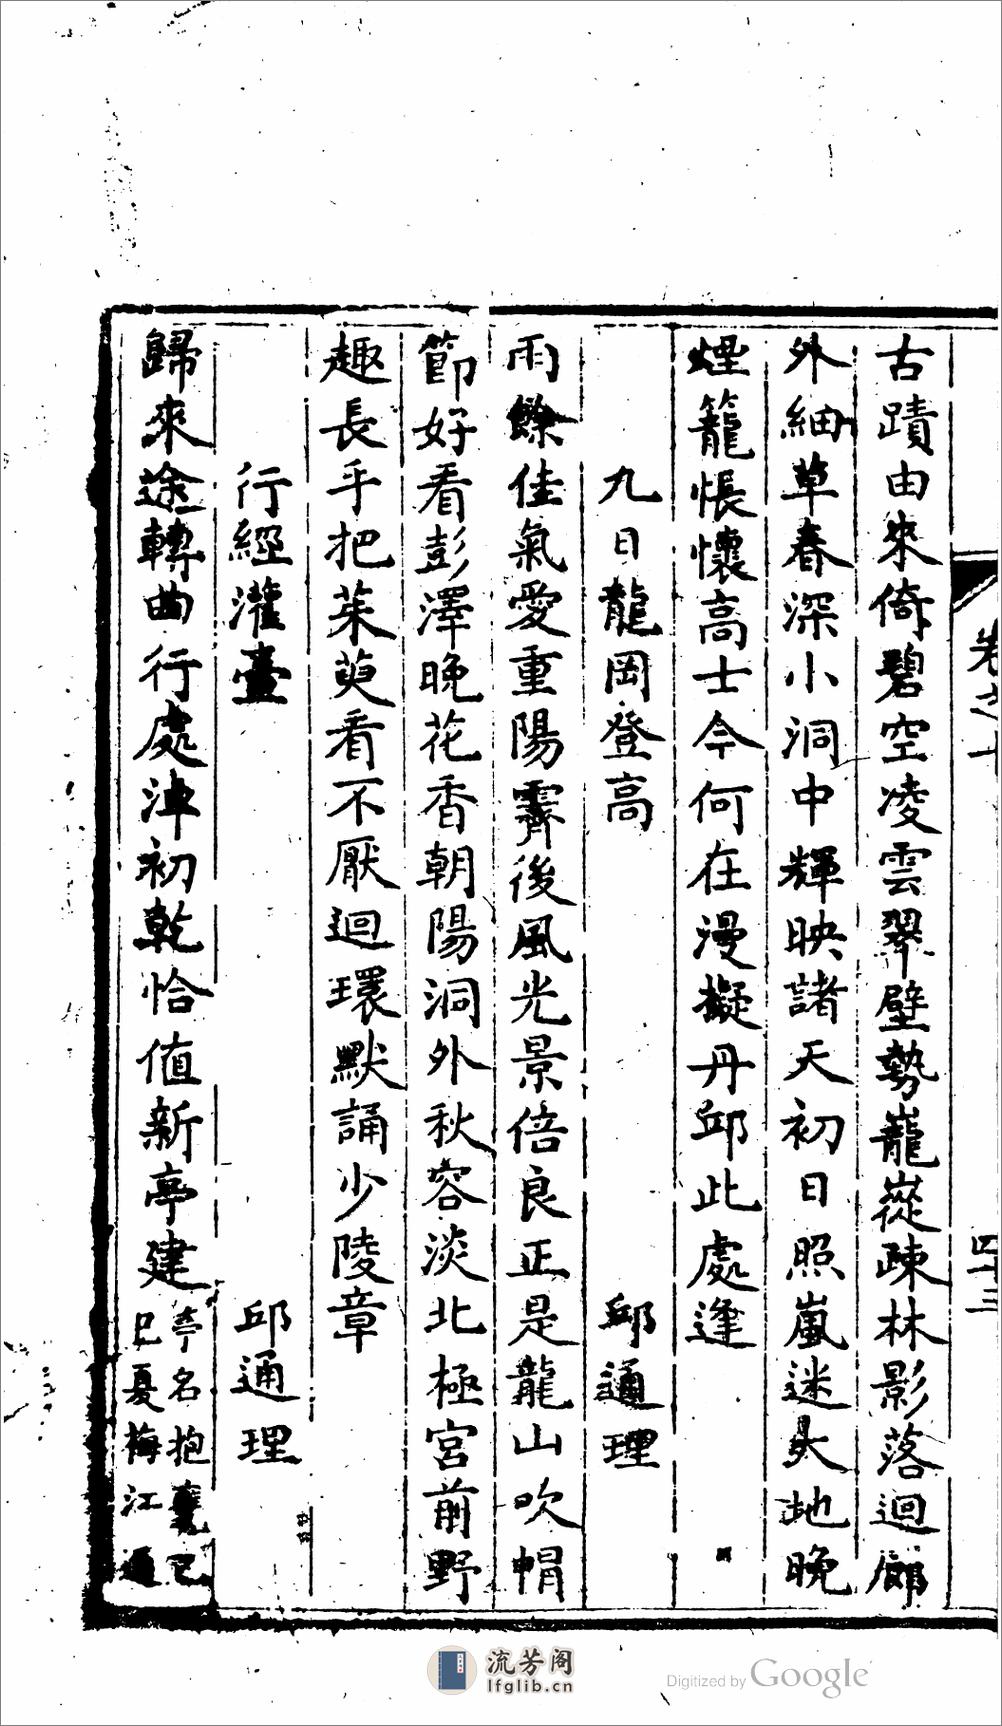 卷之十
四十三
古蹟由來倚碧空凌雲翠壁勢巃嵸疎林影落迴廊
外細草春深小洞中輝映諸天初日照嵐迷大地晚
煙籠悵懷高士今何在漫擬丹邱此處逢
九日龍岡登高
邱通理
雨餘佳氣愛重陽霽後風光景倍良正是龍山吹帽
節好看彭澤晚花香朝陽洞外秋容淡北極宮前野
趣長手把茱萸看不厭迴環默誦少陵章
行經灌臺
邱通理
歸來途轉曲行處沖初乾恰值新亭建
亭名抱甕己
巳夏梅江通
流芳阁
lfglib.cn
Digitized by Google